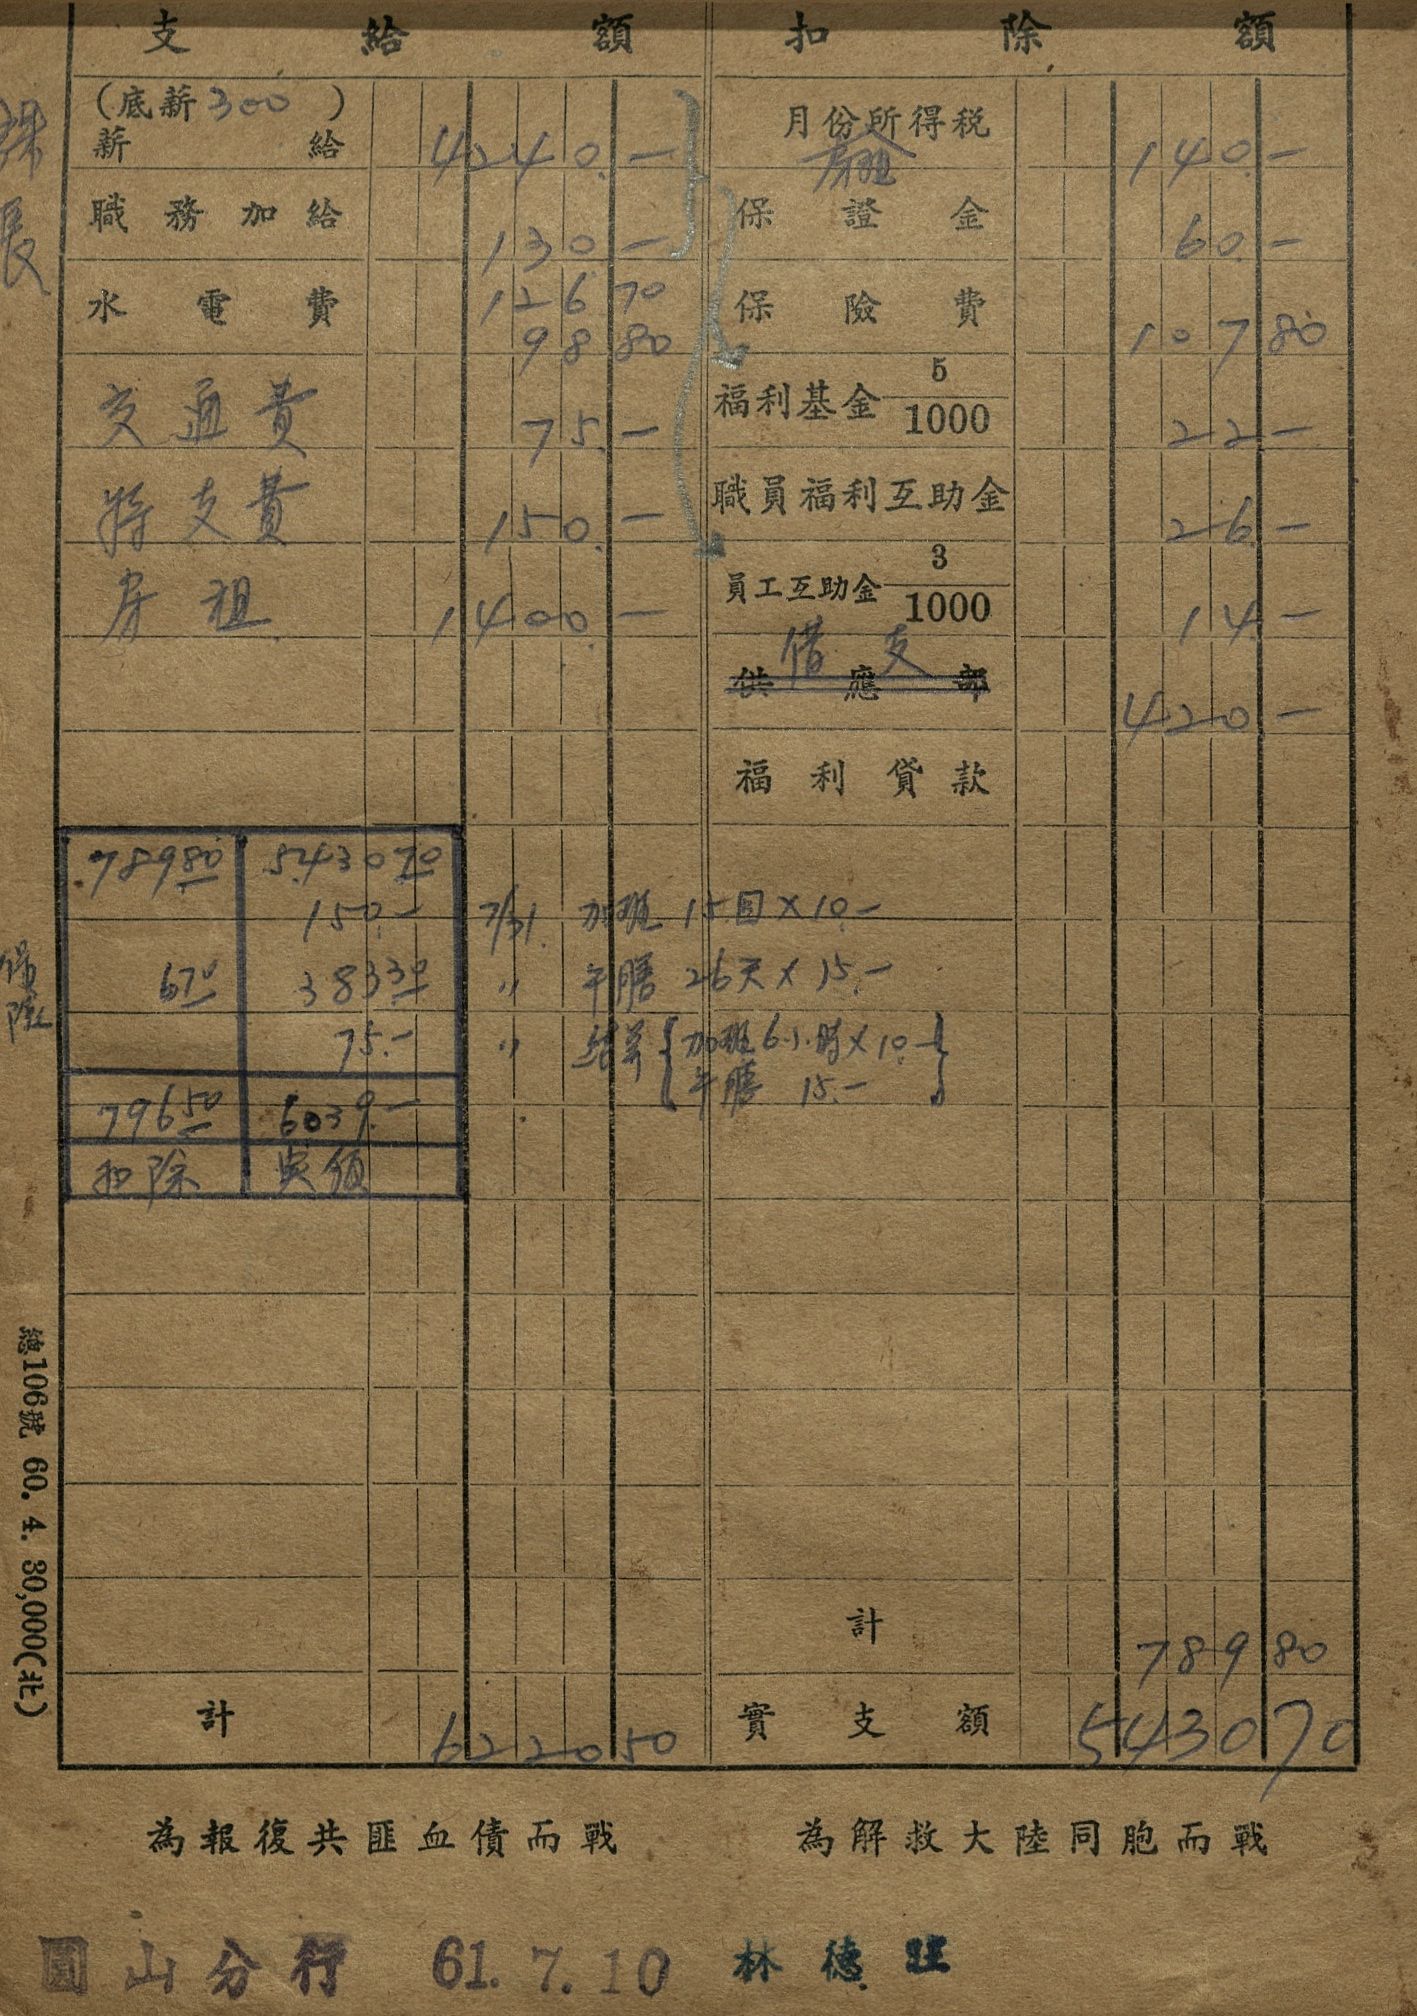 支給額
(底薪300)
薪給 4240.—
職務加給 130.—
水電費 126 70
98 80
交通費 75.—
特支費 150.—
房租 1400.—
789 80 5430 70
150.— 7/31. 加班 15日×10.—
6 70 383 30 〃 午膳 26天×15.—
75.— 〃 結算 { 加班6小時×10.— }
午膳 15.—
796 50 6039.—
扣除 實領
計 6220 50
扣除額
月份所得稅 140.—
房租
保證金 60.—
保險費 107 80
福利基金 5/1000 22—
職員福利互助金 26.—
員工互助金 3/1000 14—
借支
供應部 420—
福利貸款
計 789 80
實支額 5430 70
長
保險
總106號 60. 4. 30,000(北)
為報復共匪血債而戰 為解救大陸同胞而戰
圓山分行 61. 7. 10 林德